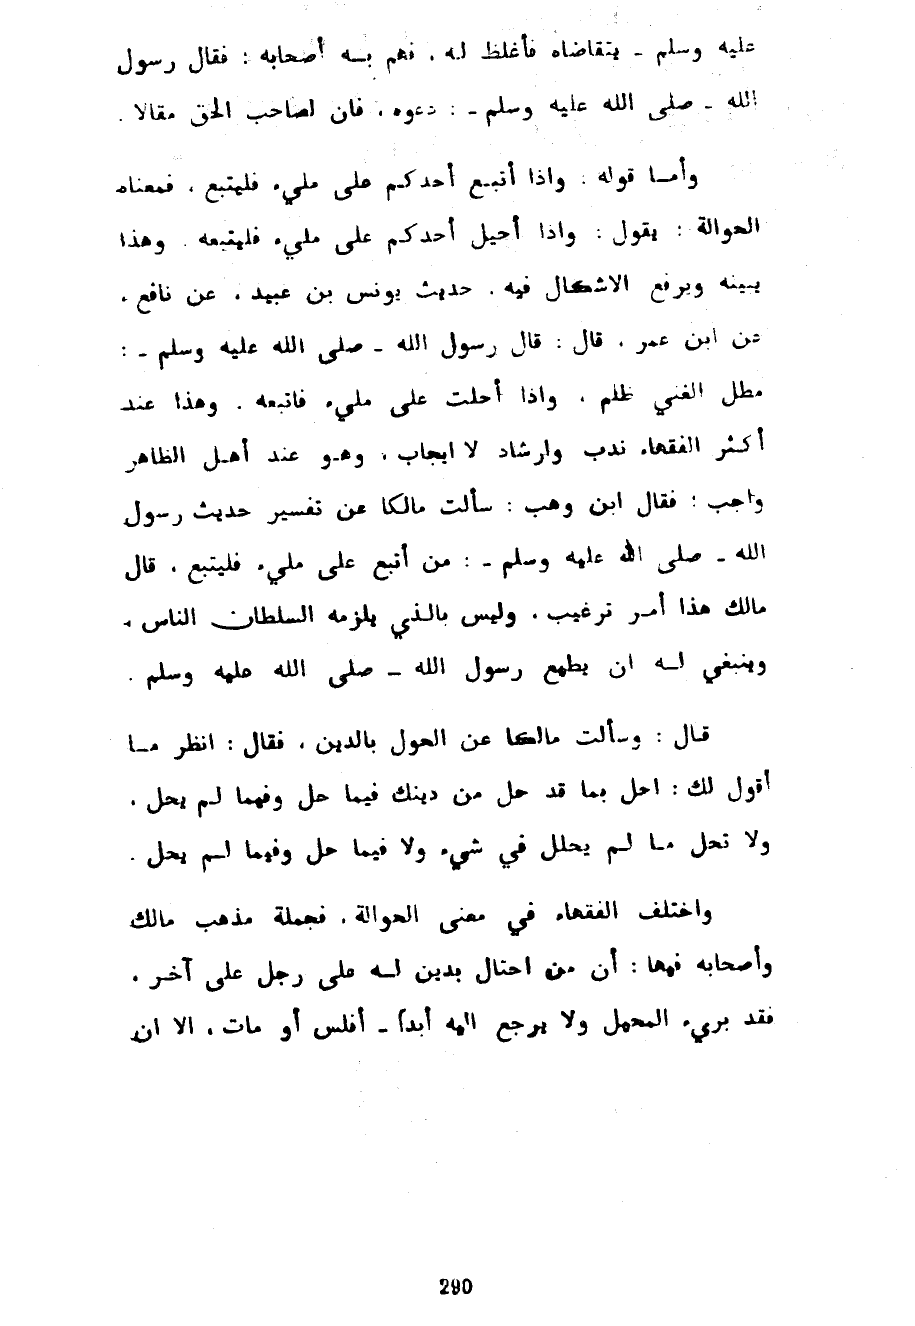 عليه وسلم ـ يتقاضاه فأغلظ له ، فهم به أصحابه : فقال رسول
الله ـ صلى الله عليه وسلم ـ : دعوه ، فان لصاحب الحق مقالا .
وأما قوله : واذا أتبع أحدكم على مليء فليتبع ، فمعناه
الحوالة : يقول : واذا أحيل أحدكم على مليء فليتبعه . وهذا
يبينه ويرفع الاشكال فيه . حديث يونس بن عبيد ، عن نافع ،
عن ابن عمر ، قال : قال رسول الله ـ صلى الله عليه وسلم ـ :
مطل الغني ظلم ، واذا أحلت على مليء فاتبعه . وهذا عند
أكثر الفقهاء ندب وارشاد لا ايجاب ، وهو عند أهل الظاهر
واجب ؛ فقال ابن وهب : سألت مالكا عن تفسير حديث رسول
الله ـ صلى الله عليه وسلم ـ : من أتبع على مليء فليتبع ، قال
مالك هذا أمر ترغيب ، وليس بالذي يلزمه السلطان الناس ،
وينبغي له ان يطيع رسول الله ـ صلى الله عليه وسلم .
قال : وسألت مالكا عن الحول بالدين ، فقال : انظر ما
أقول لك : احل بما قد حل من دينك فيما حل وفيما لم يحل ،
ولا تحل ما لم يحلل في شيء ولا فيما حل وفيما لم يحل .
واختلف الفقهاء في معنى الحوالة ، فجملة مذهب مالك
وأصحابه فيها : أن من احتال بدين له على رجل على آخر ،
فقد بريء المحيل ولا يرجع اليه أبدا ـ أفلس أو مات ، الا ان
290